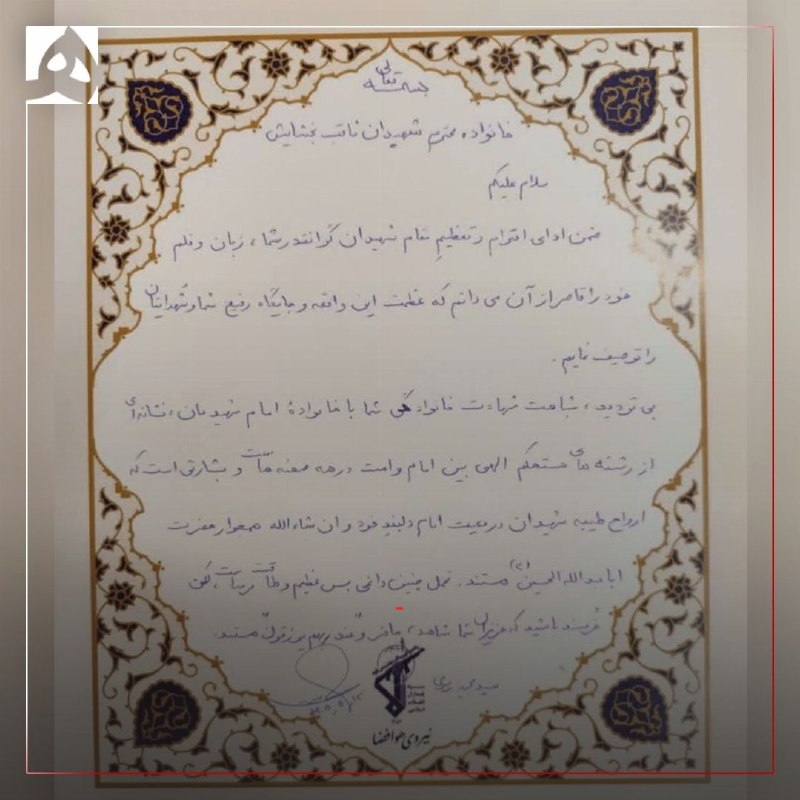 بسمه تعالی
خانواده محترم شهیدان ثاقب بخشایش
سلام علیکم
ضمن ادای احترام و تعظیم مقام شهیدان گرانقدر شما، زبان و قلم
خود را قاصر از آن می دانم که عظمت این واقعه و جایگاه رفیع شما و شهدایتان
را توصیف نمایم.
بی تردید، شباهت شهادت خانوادگی شما با خانوادهٔ امام شهیدمان، نشانه ای
از رشته های مستحکم الهی بین امام و امت در همه صحنه هاست و بشارتی است که
ارواح طیبه شهیدان در معیت امام دلبند خود و ان شاءالله همجوار حضرت
اباعبدالله الحسین (ع) هستند. تحمل چنین داغی بس عظیم و طاقت فرساست لکن
خرسند باشید که عزیزان شما شاهد، حاضر و عند ربهم یرزقون هستند.
سید مجید موسوی
نیروی هوافضا